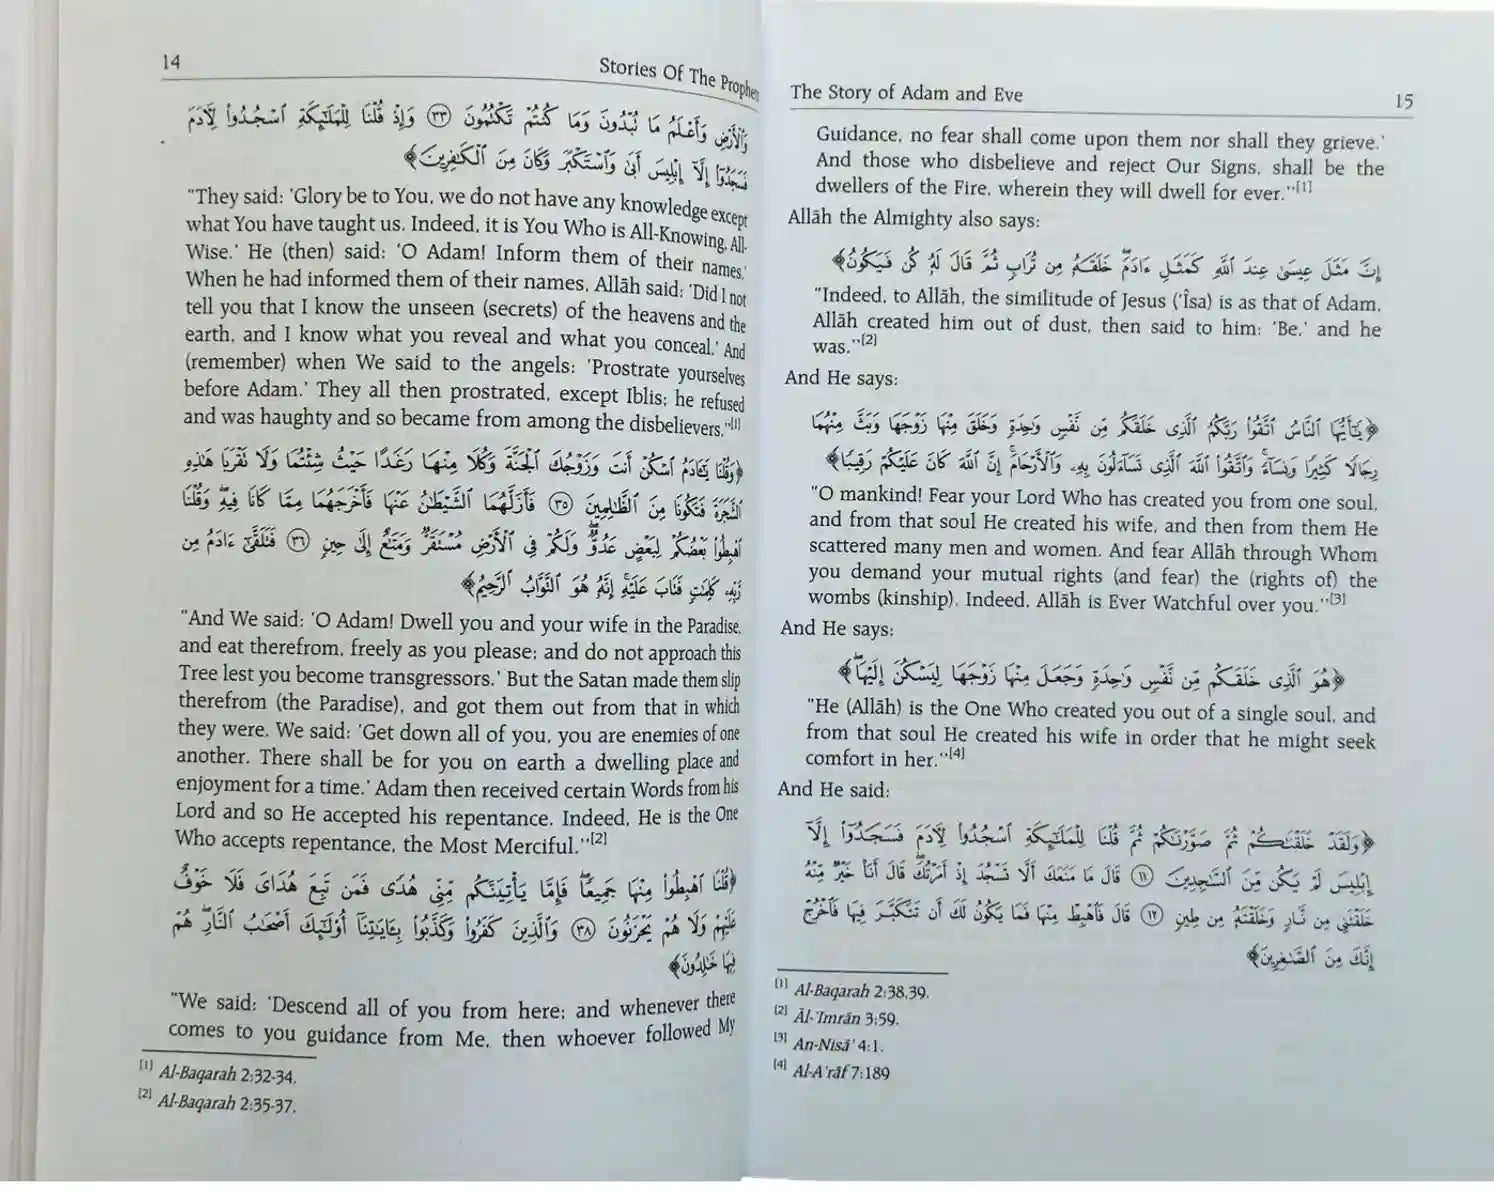 14
Stories Of The Prophets
وَٱلْأَرْضِ وَأَعْلَمُ مَا تُبْدُونَ وَمَا كُنتُمْ تَكْتُمُونَ ﴿٣٣﴾ وَإِذْ قُلْنَا لِلْمَلَٰٓئِكَةِ ٱسْجُدُوا۟ لِءَادَمَ
فَسَجَدُوٓا۟ إِلَّآ إِبْلِيسَ أَبَىٰ وَٱسْتَكْبَرَ وَكَانَ مِنَ ٱلْكَٰفِرِينَ﴾
"They said: 'Glory be to You, we do not have any knowledge except
what You have taught us. Indeed, it is You Who is All-Knowing, All-
Wise.' He (then) said: 'O Adam! Inform them of their names.'
When he had informed them of their names, Allāh said: 'Did I not
tell you that I know the unseen (secrets) of the heavens and the
earth, and I know what you reveal and what you conceal.' And
(remember) when We said to the angels: 'Prostrate yourselves
before Adam.' They all then prostrated, except Iblis; he refused
and was haughty and so became from among the disbelievers."[1]
﴿وَقُلْنَا يَٰٓـَٔادَمُ ٱسْكُنْ أَنتَ وَزَوْجُكَ ٱلْجَنَّةَ وَكُلَا مِنْهَا رَغَدًا حَيْثُ شِئْتُمَا وَلَا تَقْرَبَا هَٰذِهِ
ٱلشَّجَرَةَ فَتَكُونَا مِنَ ٱلظَّٰلِمِينَ ﴿٣٥﴾ فَأَزَلَّهُمَا ٱلشَّيْطَٰنُ عَنْهَا فَأَخْرَجَهُمَا مِمَّا كَانَا فِيهِ ۖ وَقُلْنَا
ٱهْبِطُوا۟ بَعْضُكُمْ لِبَعْضٍ عَدُوٌّ ۖ وَلَكُمْ فِى ٱلْأَرْضِ مُسْتَقَرٌّ وَمَتَٰعٌ إِلَىٰ حِينٍ ﴿٣٦﴾ فَتَلَقَّىٰٓ ءَادَمُ مِن
رَّبِّهِۦ كَلِمَٰتٍ فَتَابَ عَلَيْهِ ۚ إِنَّهُۥ هُوَ ٱلتَّوَّابُ ٱلرَّحِيمُ﴾
"And We said: 'O Adam! Dwell you and your wife in the Paradise,
and eat therefrom, freely as you please; and do not approach this
Tree lest you become transgressors.' But the Satan made them slip
therefrom (the Paradise), and got them out from that in which
they were. We said: 'Get down all of you, you are enemies of one
another. There shall be for you on earth a dwelling place and
enjoyment for a time.' Adam then received certain Words from his
Lord and so He accepted his repentance. Indeed, He is the One
Who accepts repentance, the Most Merciful."[2]
﴿قُلْنَا ٱهْبِطُوا۟ مِنْهَا جَمِيعًا ۖ فَإِمَّا يَأْتِيَنَّكُم مِّنِّى هُدًى فَمَن تَبِعَ هُدَاىَ فَلَا خَوْفٌ
عَلَيْهِمْ وَلَا هُمْ يَحْزَنُونَ ﴿٣٨﴾ وَٱلَّذِينَ كَفَرُوا۟ وَكَذَّبُوا۟ بِـَٔايَٰتِنَآ أُو۟لَٰٓئِكَ أَصْحَٰبُ ٱلنَّارِ ۖ هُمْ
فِيهَا خَٰلِدُونَ﴾
"We said: 'Descend all of you from here; and whenever there
comes to you guidance from Me, then whoever followed My
[1] Al-Baqarah 2:32-34.
[2] Al-Baqarah 2:35-37.
The Story of Adam and Eve
15
Guidance, no fear shall come upon them nor shall they grieve.'
And those who disbelieve and reject Our Signs, shall be the
dwellers of the Fire, wherein they will dwell for ever."[1]
Allāh the Almighty also says:
إِنَّ مَثَلَ عِيسَىٰ عِندَ ٱللَّهِ كَمَثَلِ ءَادَمَ ۖ خَلَقَهُۥ مِن تُرَابٍ ثُمَّ قَالَ لَهُۥ كُن فَيَكُونُ﴾
"Indeed, to Allāh, the similitude of Jesus ('Îsa) is as that of Adam.
Allāh created him out of dust, then said to him: 'Be.' and he
was."[2]
And He says:
﴿يَٰٓأَيُّهَا ٱلنَّاسُ ٱتَّقُوا۟ رَبَّكُمُ ٱلَّذِى خَلَقَكُم مِّن نَّفْسٍ وَٰحِدَةٍ وَخَلَقَ مِنْهَا زَوْجَهَا وَبَثَّ مِنْهُمَا
رِجَالًا كَثِيرًا وَنِسَآءً ۚ وَٱتَّقُوا۟ ٱللَّهَ ٱلَّذِى تَسَآءَلُونَ بِهِۦ وَٱلْأَرْحَامَ ۚ إِنَّ ٱللَّهَ كَانَ عَلَيْكُمْ رَقِيبًا﴾
"O mankind! Fear your Lord Who has created you from one soul,
and from that soul He created his wife, and then from them He
scattered many men and women. And fear Allāh through Whom
you demand your mutual rights (and fear) the (rights of) the
wombs (kinship). Indeed, Allāh is Ever Watchful over you."[3]
And He says:
﴿هُوَ ٱلَّذِى خَلَقَكُم مِّن نَّفْسٍ وَٰحِدَةٍ وَجَعَلَ مِنْهَا زَوْجَهَا لِيَسْكُنَ إِلَيْهَا ۖ﴾
"He (Allāh) is the One Who created you out of a single soul, and
from that soul He created his wife in order that he might seek
comfort in her."[4]
And He said:
﴿وَلَقَدْ خَلَقْنَٰكُمْ ثُمَّ صَوَّرْنَٰكُمْ ثُمَّ قُلْنَا لِلْمَلَٰٓئِكَةِ ٱسْجُدُوا۟ لِءَادَمَ فَسَجَدُوٓا۟ إِلَّآ
إِبْلِيسَ لَمْ يَكُن مِّنَ ٱلسَّٰجِدِينَ ﴿١١﴾ قَالَ مَا مَنَعَكَ أَلَّا تَسْجُدَ إِذْ أَمَرْتُكَ ۖ قَالَ أَنَا۠ خَيْرٌ مِّنْهُ
خَلَقْتَنِى مِن نَّارٍ وَخَلَقْتَهُۥ مِن طِينٍ ﴿١٢﴾ قَالَ فَٱهْبِطْ مِنْهَا فَمَا يَكُونُ لَكَ أَن تَتَكَبَّرَ فِيهَا فَٱخْرُجْ
إِنَّكَ مِنَ ٱلصَّٰغِرِينَ﴾
[1] Al-Baqarah 2:38,39.
[2] Āl-'Imrān 3:59.
[3] An-Nisā' 4:1.
[4] Al-A'rāf 7:189